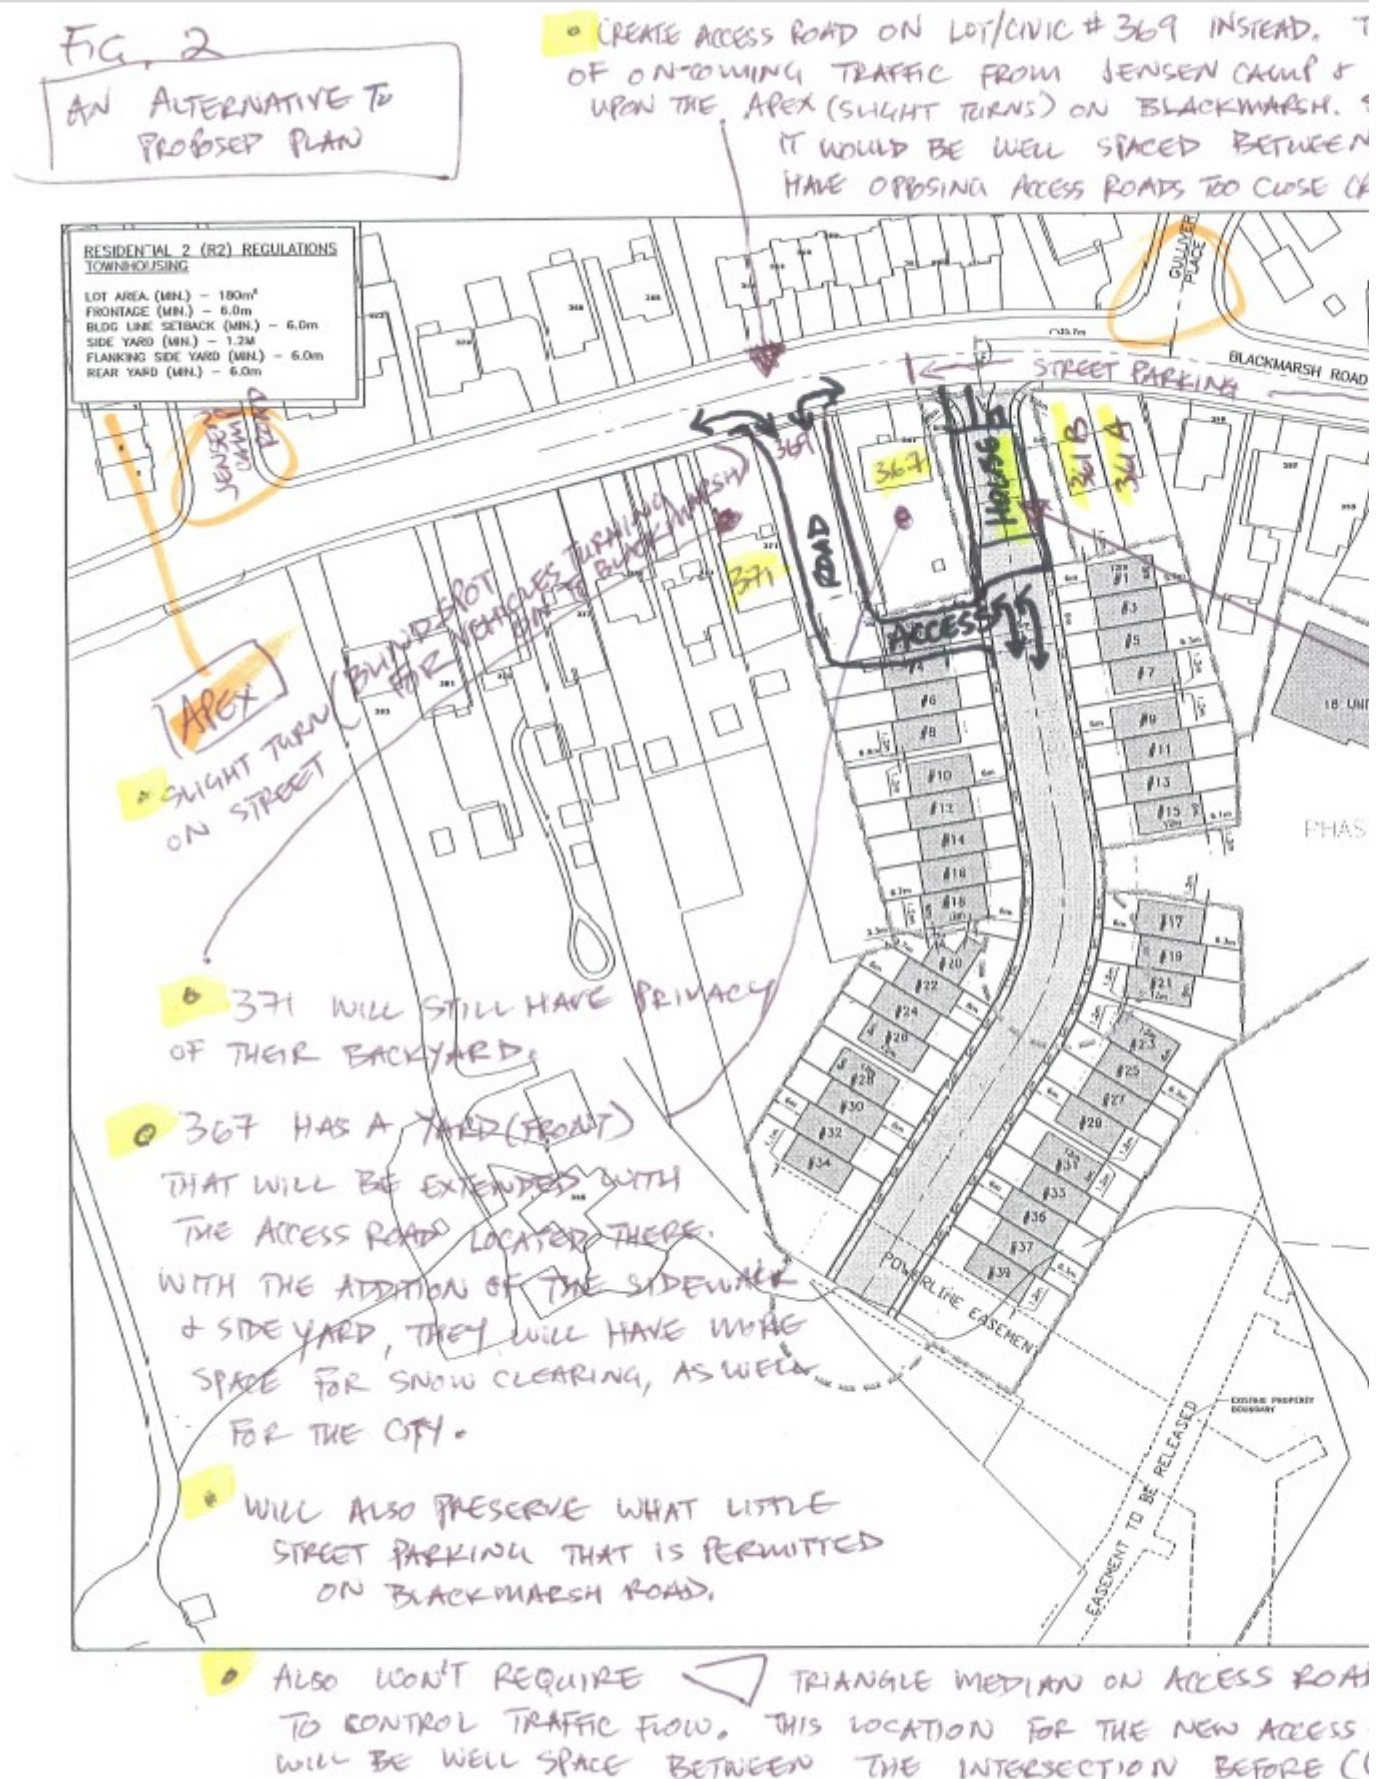 FIG. 2
AN ALTERNATIVE TO
PROPOSED PLAN
CREATE ACCESS ROAD ON LOT/CIVIC # 369 INSTEAD. T
OF ON-COMING TRAFFIC FROM JENSEN CAMP &
UPON THE APEX (SLIGHT TURNS) ON BLACKMARSH.
IT WOULD BE WELL SPACED BETWEEN
HAVE OPPOSING ACCESS ROADS TOO CLOSE
RESIDENTIAL 2 (R2) REGULATIONS
TOWNHOUSING
LOT AREA. (MIN.) - 180m²
FRONTAGE (MIN.) - 6.0m
BLDG LINE SETBACK (MIN.) - 6.0m
SIDE YARD (MIN.) - 1.2M
FLANKING SIDE YARD (MIN.) - 6.0m
REAR YARD (MIN.) - 6.0m
GULLIVER
PLACE
BLACKMARSH ROAD
STREET PARKING
JENSEN
CAMP
ROAD
369
367
HOUSE
361 B
361 A
371
ROAD
ACCESS
APEX
SLIGHT TURN (BLIND SPOT
FOR VEHICLES TURNING
ON TO BLACKMARSH)
ON STREET
#1
#3
#5
#7
#9
#11
#13
#15
#17
#19
#21
#23
#25
#27
#29
#31
#33
#35
#37
#39
#4
#6
#8
#10
#12
#14
#16
#18
#20
#22
#24
#26
#28
#30
#32
#34
18 UNI
PHAS
371 WILL STILL HAVE PRIVACY
OF THEIR BACKYARD.
367 HAS A YARD (FRONT)
THAT WILL BE EXTENDED WITH
THE ACCESS ROAD LOCATED THERE.
WITH THE ADDITION OF THE SIDEWALK
& SIDE YARD, THEY WILL HAVE MORE
SPACE FOR SNOW CLEARING, AS WELL
FOR THE CITY.
POWERLINE EASEMENT
EXISTING PROPERTY
BOUNDARY
EASEMENT TO BE RELEASED
WILL ALSO PRESERVE WHAT LITTLE
STREET PARKING THAT IS PERMITTED
ON BLACKMARSH ROAD.
ALSO WON'T REQUIRE TRIANGLE MEDIAN ON ACCESS ROAD
TO CONTROL TRAFFIC FLOW. THIS LOCATION FOR THE NEW ACCESS
WILL BE WELL SPACE BETWEEN THE INTERSECTION BEFORE